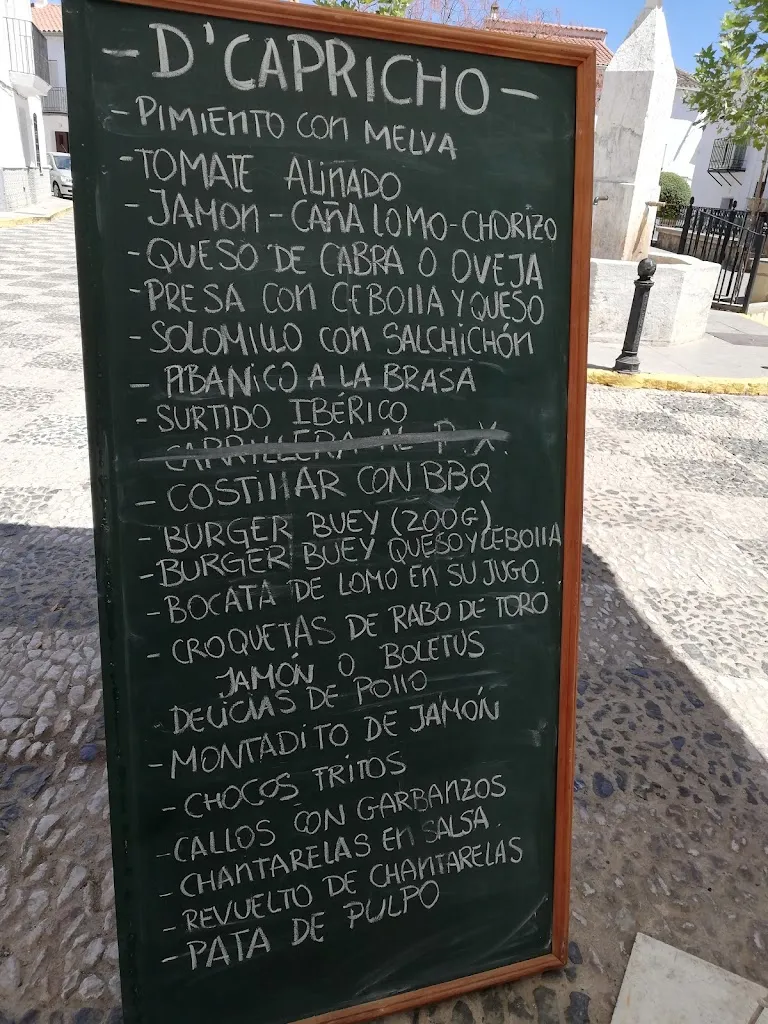 - D'CAPRICHO -
- PIMIENTO CON MELVA
- TOMATE ALIÑADO
- JAMON - CAÑA LOMO - CHORIZO
- QUESO DE CABRA O OVEJA
- PRESA CON CEBOLLA Y QUESO
- SOLOMILLO CON SALCHICHÓN
- ABANICO A LA BRASA
- SURTIDO IBÉRICO
CARRILLERA AL P.X.
- COSTILLAR CON BBQ
- BURGER BUEY (200G)
- BURGER BUEY QUESO Y CEBOLLA
- BOCATA DE LOMO EN SU JUGO.
- CROQUETAS DE RABO DE TORO
JAMÓN O BOLETUS
- DELICIAS DE POLLO
- MONTADITO DE JAMÓN
- CHOCOS FRITOS
- CALLOS CON GARBANZOS
- CHANTARELAS EN SALSA
- REVUELTO DE CHANTARELAS
- PATA DE PULPO